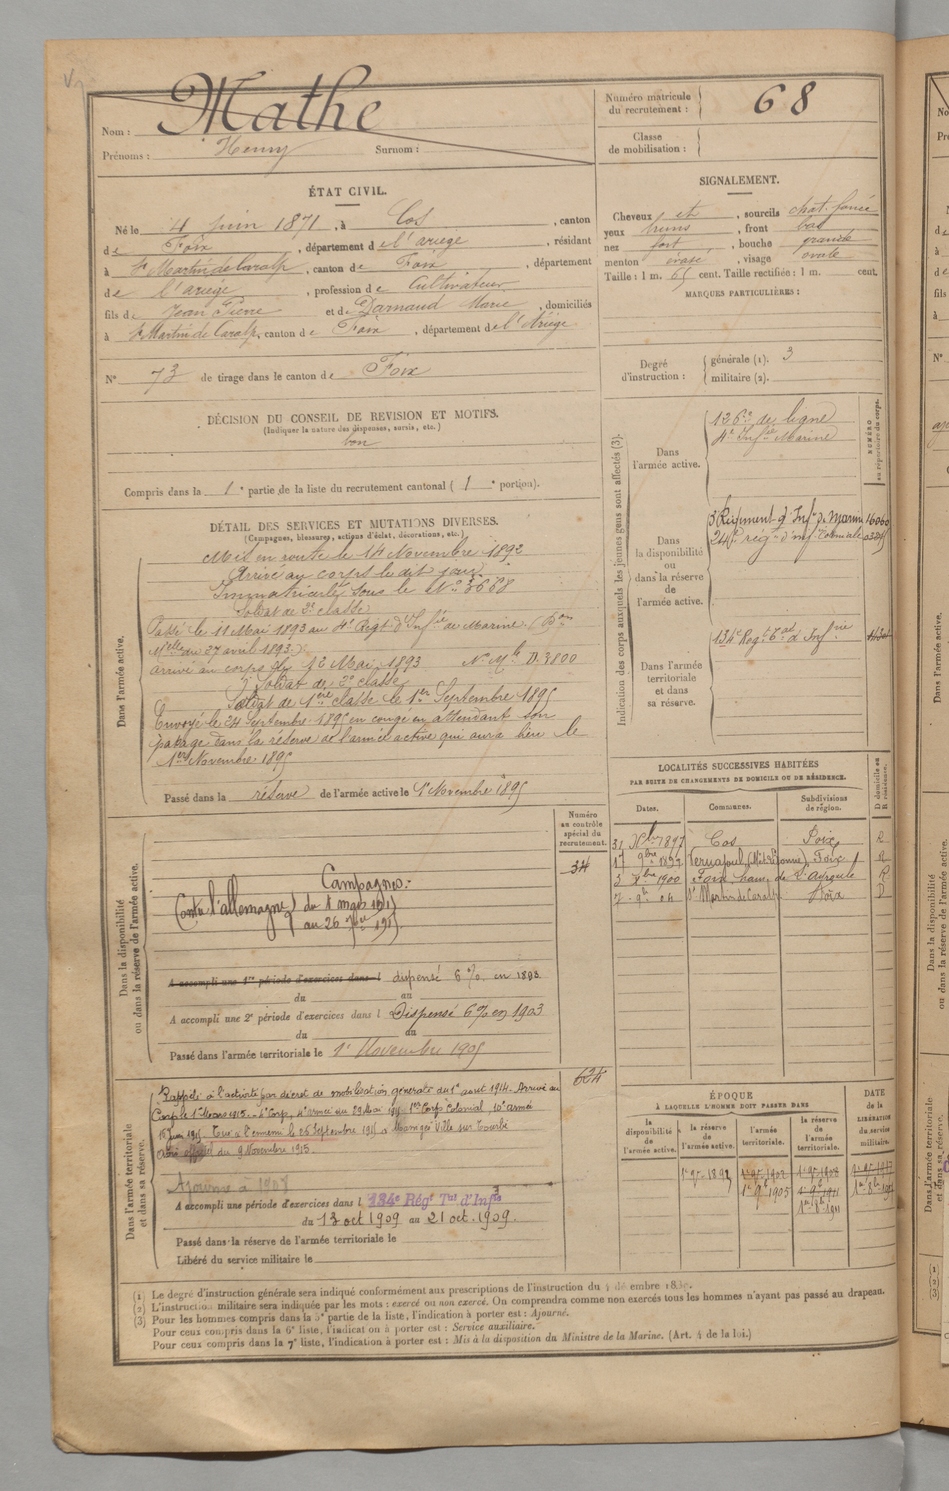 Nom : Mathe
Prénoms : Henry Surnom :
Numéro matricule du recrutement : 68
Classe de mobilisation :
ÉTAT CIVIL.
Né le 4 juin 1871, à Cos, canton
de Foix, département de l'ariège, résidant
à St Martin de Caralp, canton de Foix, département
de l'ariège, profession de Cultivateur
fils de Jean Pierre et de Darnaud Marie, domiciliés
à St Martin de Caralp, canton de Foix, département de l'Ariège
N° 73 de tirage dans le canton de Foix
DÉCISION DU CONSEIL DE REVISION ET MOTIFS.
(Indiquer la nature des dispenses, sursis, etc.)
bon
Compris dans la 1e partie de la liste du recrutement cantonal (1e portion).
SIGNALEMENT.
Cheveux et, sourcils chat. foncé
yeux bruns, front bas
nez fort, bouche grande
menton évasé, visage ovale
Taille : 1 m. 65 cent. Taille rectifiée : 1 m. cent.
MARQUES PARTICULIÈRES :
Degré d'instruction :
générale (1). 3
militaire (2).
DÉTAIL DES SERVICES ET MUTATIONS DIVERSES.
(Campagnes, blessures, actions d'éclat, décorations, etc.)
Dans l'armée active.
Mis en route le 14 Novembre 1892
Arrivé au corps le dit jour.
Immatriculé sous le N° 3668
Soldat de 2e classe
Passé le 11 Mai 1893 au 4e Regt d'Infie de Marine. (
Mlle du 27 avril 1893)
arrivé au corps le 12 Mai 1893 N° Mle 3800
Soldat de 2e classe
Soldat de 1ère classe le 1er Septembre 1895
Envoyé le 24 Septembre 1895 en congé en attendant son
passage dans la réserve de l'armée active qui aura lieu le
1er Novembre 1895
Passé dans la réserve de l'armée active le 1er Novembre 1895
Indication des corps auxquels les jeunes gens sont affectés (3).
NUMÉRO au répertoire du corps.
Dans l'armée active.
126e de ligne
4e Infie Marine
Dans la disponibilité ou dans la réserve de l'armée active.
Régiment d'Infie de Marine 16060
24e rég. d'inf. Coloniale
Dans l'armée territoriale et dans sa réserve.
134e Regt Tal d'Infie
LOCALITÉS SUCCESSIVES HABITÉES
PAR SUITE DE CHANGEMENTS DE DOMICILE OU DE RÉSIDENCE.
Dates. Communes. Subdivisions de région. D domicile ou R résidence.
31 Xbre 1897 Cos Foix R
17 9bre 1897 Vernajoul Foix R
3 Xbre 1900 Foix, ham. de R
7 9bre 04 St Martin de Caralp Foix D
Dans la disponibilité ou dans la réserve de l'armée active.
Numéro au contrôle spécial du recrutement.
34
Campagnes :
Contre l'allemagne du 1 mars 1915
au 26 7bre 1915
A accompli une 1re période d'exercices dans l dispensé 6 % en 1898
du au
A accompli une 2e période d'exercices dans l Dispensé 6% en 1903
du au
Passé dans l'armée territoriale le 1er Novembre 1905
624
Dans l'armée territoriale et dans sa réserve.
Rappelé à l'activité par décret de mobilisation générale du 1er aout 1914. Arrivé au
Corps le 1er Mars 1915. 1er Corps Colonial, 10e armée
15 Juin 1915. Tué à l'ennemi le 26 Septembre 1915 à Massiges Ville sur Tourbe
Avis officiel du 9 Novembre 1915.
Ajourné à 1908
A accompli une période d'exercices dans l 134e Régt Tal d'Infie
du 13 oct 1909 au 21 oct. 1909.
Passé dans la réserve de l'armée territoriale le
Libéré du service militaire le
ÉPOQUE
À LAQUELLE L'HOMME DOIT PASSER DANS
la disponibilité de l'armée active. la réserve de l'armée active. l'armée territoriale. la réserve de l'armée territoriale. DATE de la LIBÉRATION du service militaire.
1er 9bre 1905
(1) Le degré d'instruction générale sera indiqué conformément aux prescriptions de l'instruction du
(2) L'instruction militaire sera indiquée par les mots : exercé ou non exercé. On comprendra comme non exercés tous les hommes n'ayant pas passé au drapeau.
(3) Pour les hommes compris dans la 5e partie de la liste, l'indication à porter est : Ajourné.
Pour ceux compris dans la 6e liste, l'indication à porter est : Service auxiliaire.
Pour ceux compris dans la 7e liste, l'indication à porter est : Mis à la disposition du Ministre de la Marine. (Art. 4 de la loi.)